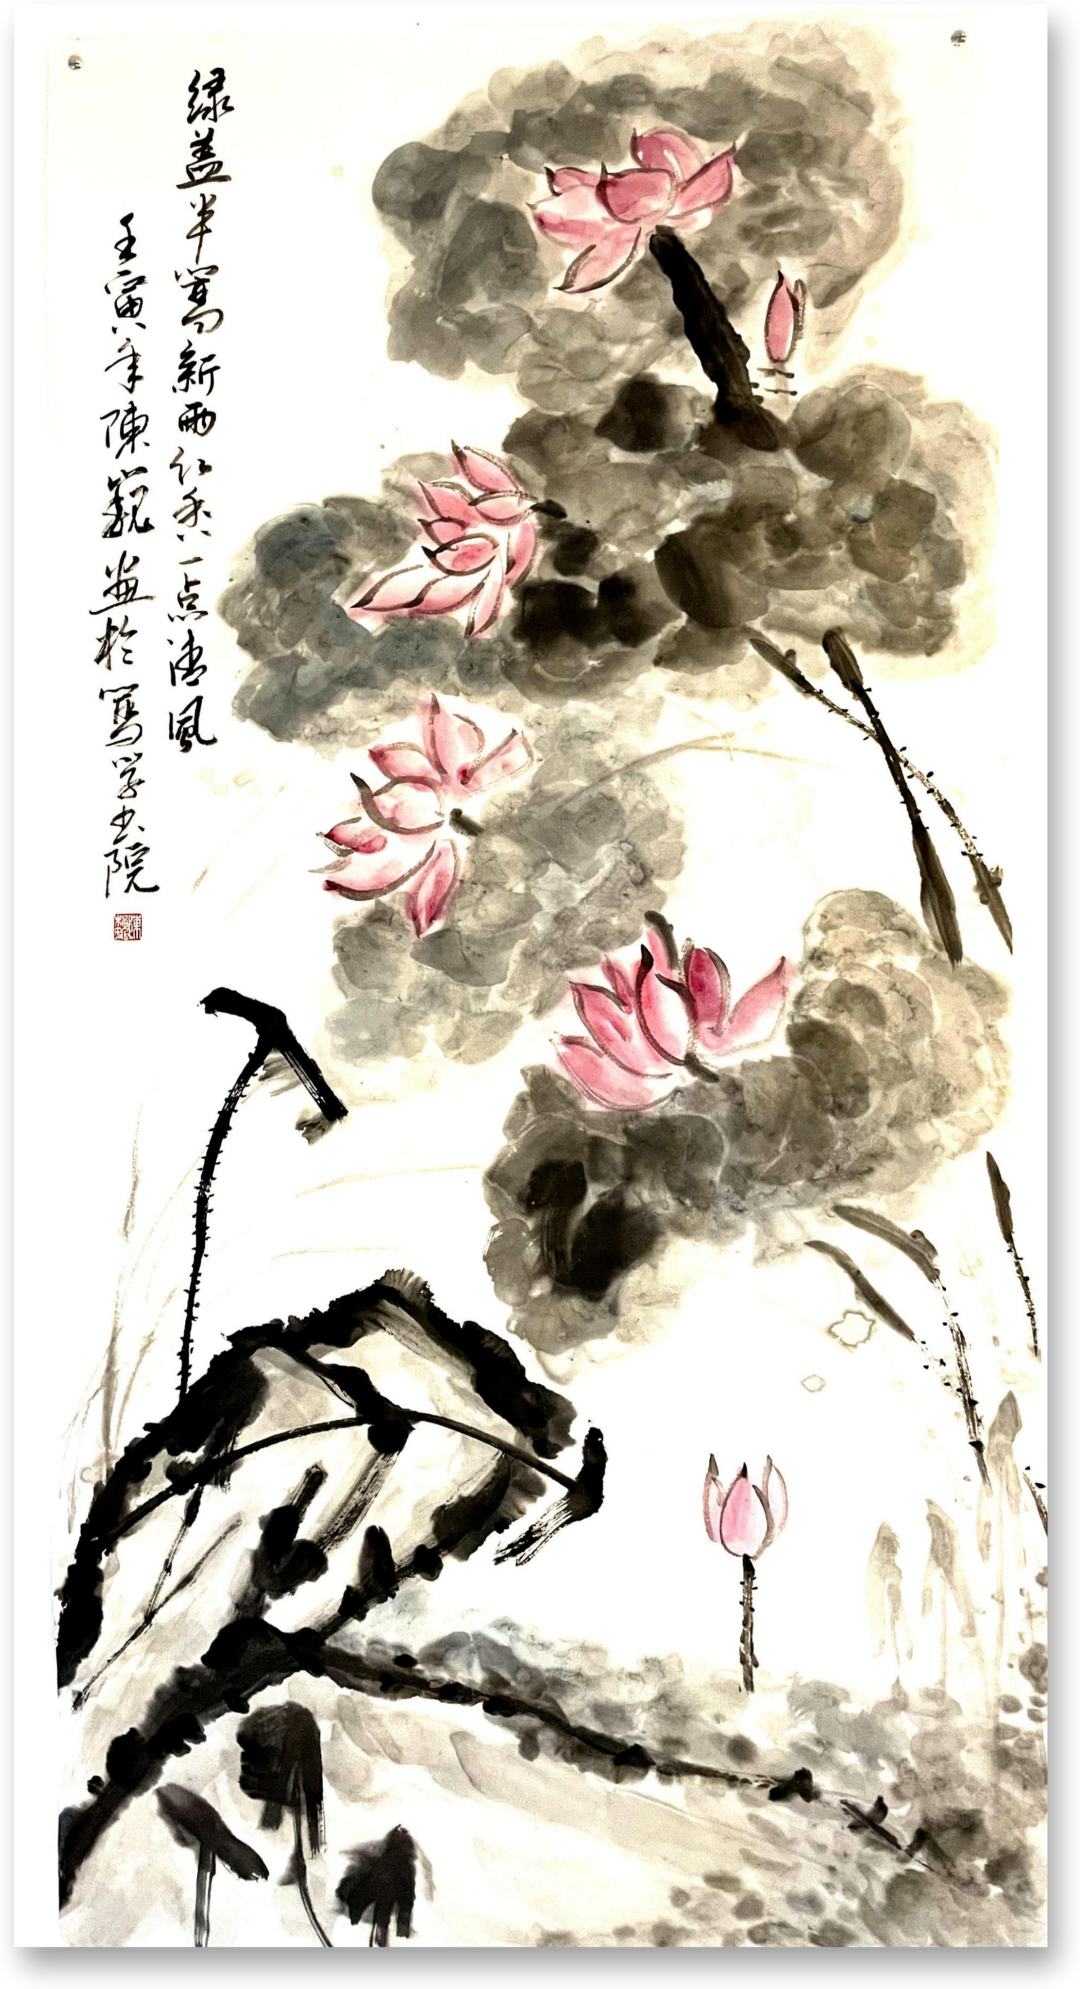 绿盖半篙新雨红香一点清风
壬寅年陳巍画於篤学书院